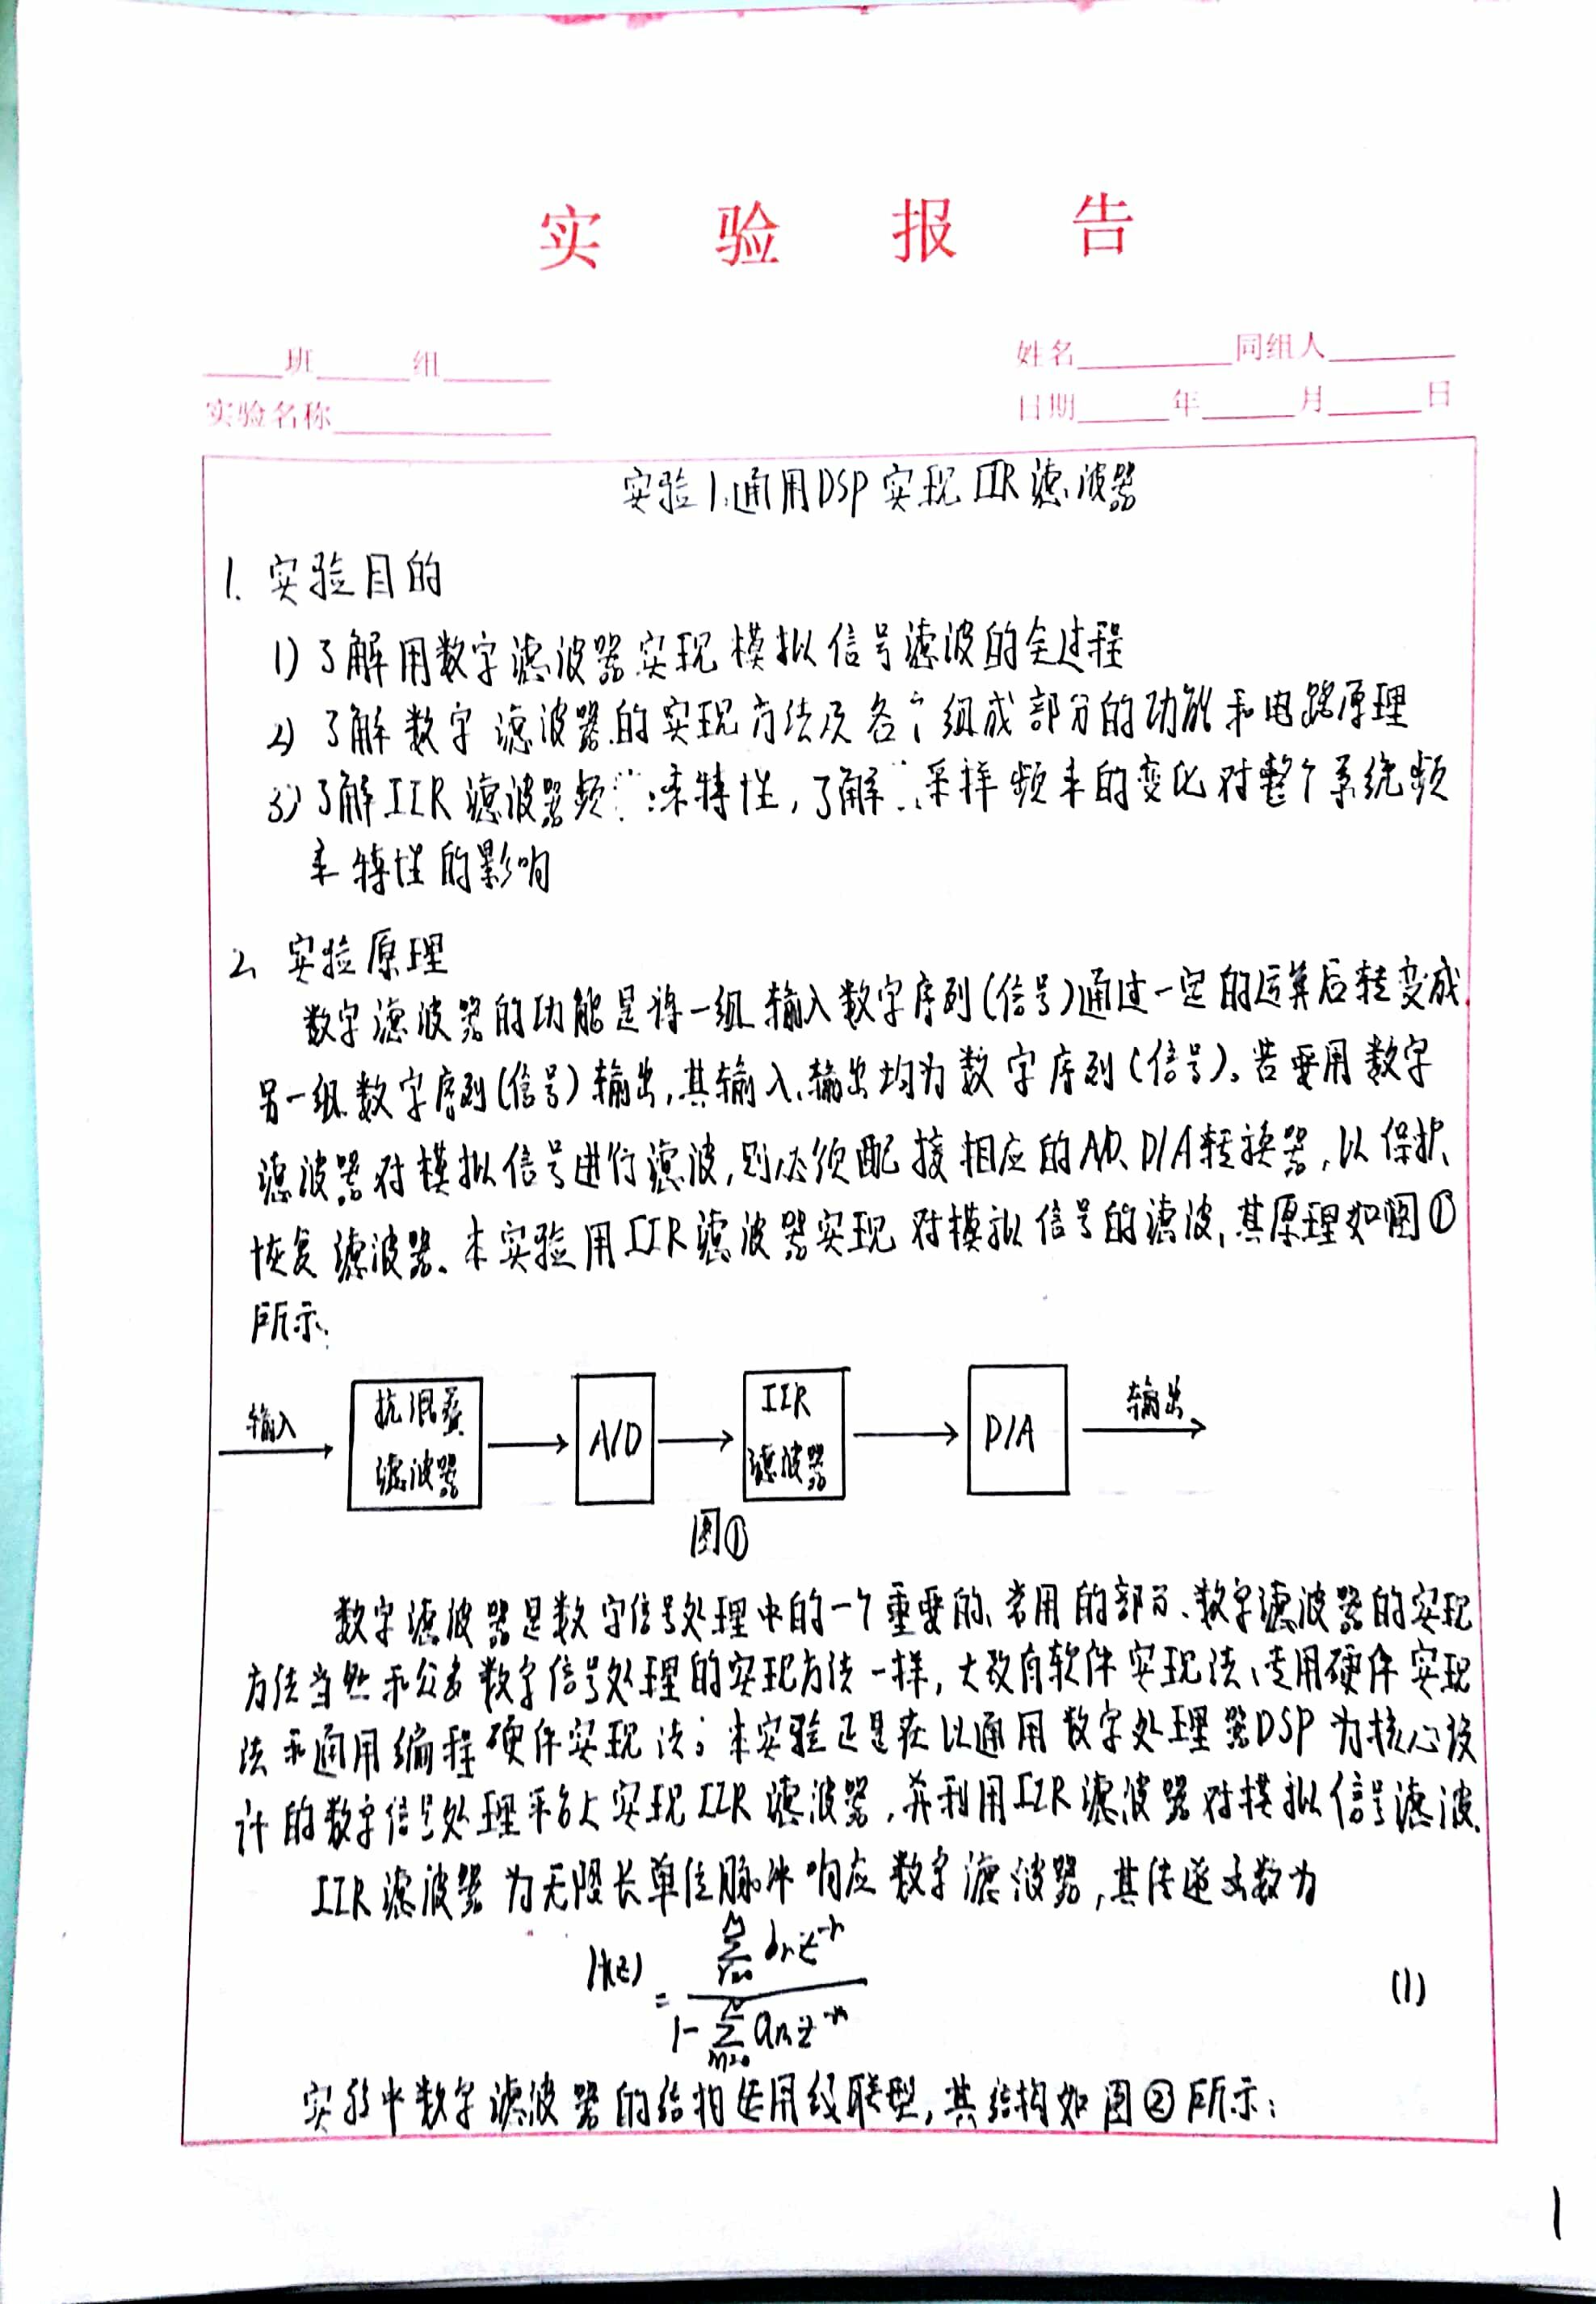 实验报告
班 组 姓名 同组人
实验名称 日期 年 月 日
实验1.通用DSP实现IIR滤波器
1. 实验目的
1) 了解用数字滤波器实现模拟信号滤波的全过程
2) 了解数字滤波器的实现方法及各个组成部分的功能和电路原理
3) 了解IIR滤波器频率特性,了解采样频率的变化对整个系统频
率特性的影响
2. 实验原理
数字滤波器的功能是将一组输入数字序列(信号)通过一定的运算后转变成
另一组数字序列(信号)输出,其输入、输出均为数字序列(信号)。若要用数字
滤波器对模拟信号进行滤波,则必须配接相应的A/D、D/A转换器,以保护、
恢复滤波器。本实验用IIR滤波器实现对模拟信号的滤波,其原理如图①
所示:
输入 抗混叠滤波器 A/D IIR滤波器 D/A 输出
图①
数字滤波器是数字信号处理中的一个重要的、常用的部分、数字滤波器的实现
方法当然和众多数字信号处理的实现方法一样,大致有软件实现法、专用硬件实现
法和通用编程硬件实现法;本实验正是在以通用数字处理器DSP为核心设
计的数字信号处理平台上实现IIR滤波器,并利用IIR滤波器对模拟信号滤波.
IIR滤波器为无限长单位脉冲响应数字滤波器,其传递函数为
H(z) = \frac{\sum_{r=0}^{M} b_r z^{-r}}{1-\sum_{n=0}^{N} a_n z^{-n}} (1)
实验中数字滤波器的结构使用级联型,其结构如图②所示:
1